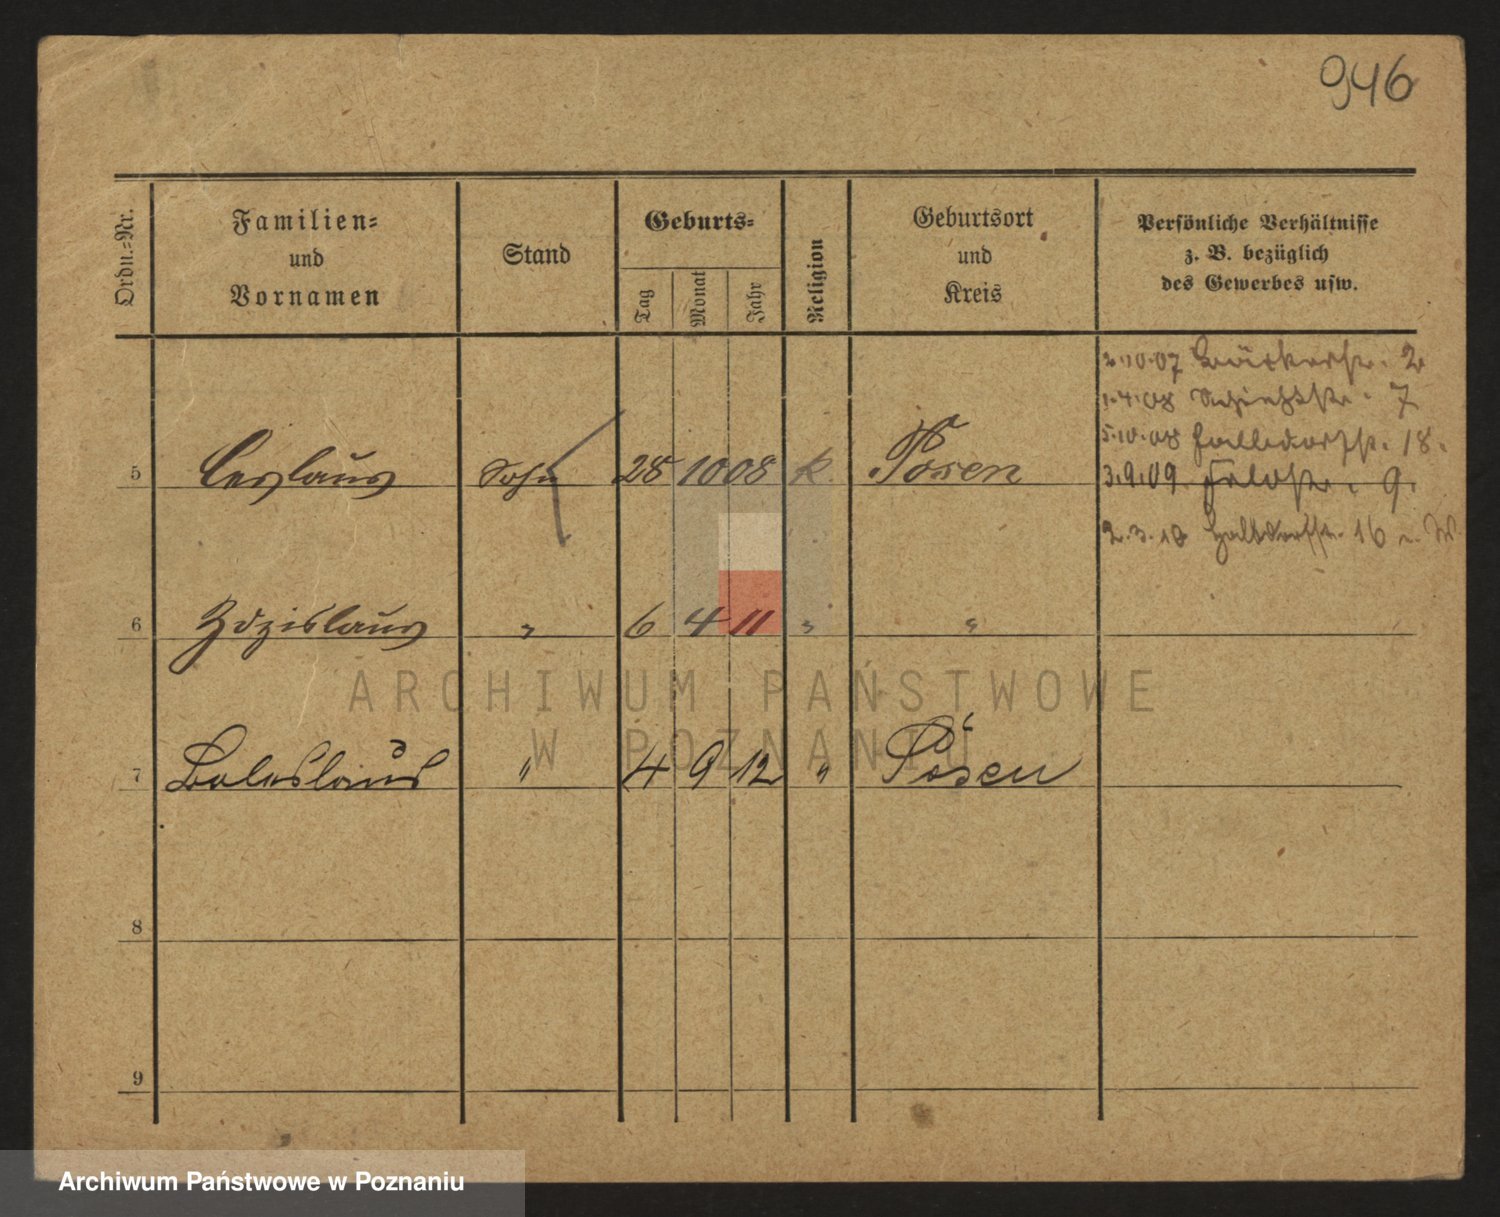 946
Ordn.=Nr.
Familien=
und
Vornamen
Stand
Geburts=
Tag
Monat
Jahr
Religion
Geburtsort
und
Kreis
Persönliche Verhältnisse
z. B. bezüglich
des Gewerbes usw.
2.10.07 Bäckerstr. 2
1.4.08 7
5.10.08 18.
3.9.09 Feldstr. 9.
5 Ceslaus Sohn 28 10 08 k. Posen
2.3.10 16
6 Zdzislaus " 6 4 11 " "
ARCHIWUM PAŃSTWOWE
W POZNANIU
7 Boleslaus " 4 9 12 " Posen
8
9
Archiwum Państwowe w Poznaniu